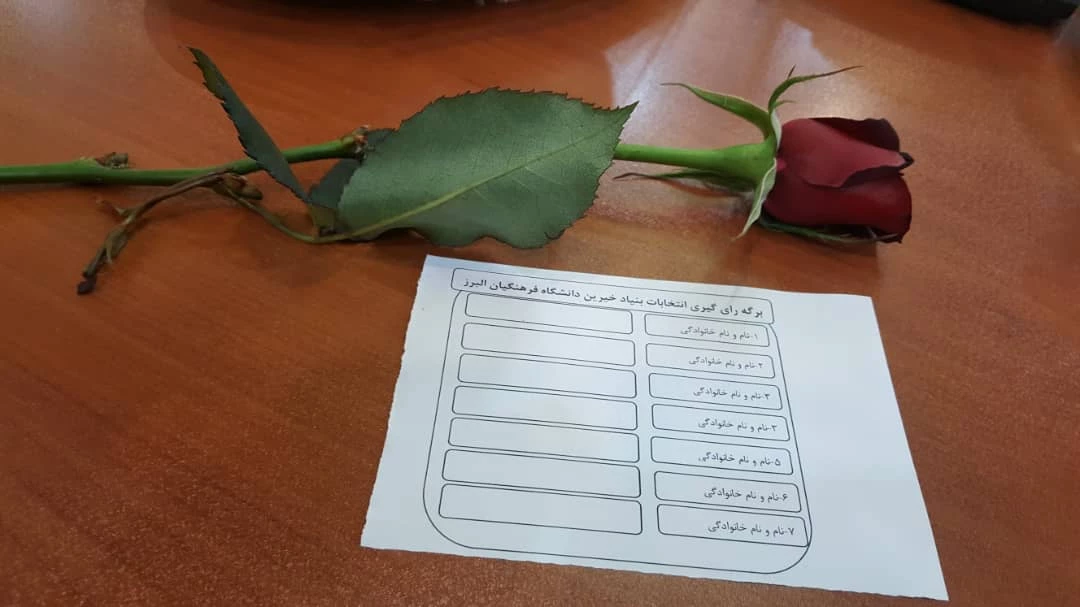 برگه رای گیری انتخابات بنیاد خیرین دانشگاه فرهنگیان البرز
۱-نام و نام خانوادگی
۲-نام و نام خانوادگی
۳-نام و نام خانوادگی
۴-نام و نام خانوادگی
۵-نام و نام خانوادگی
۶-نام و نام خانوادگی
۷-نام و نام خانوادگی